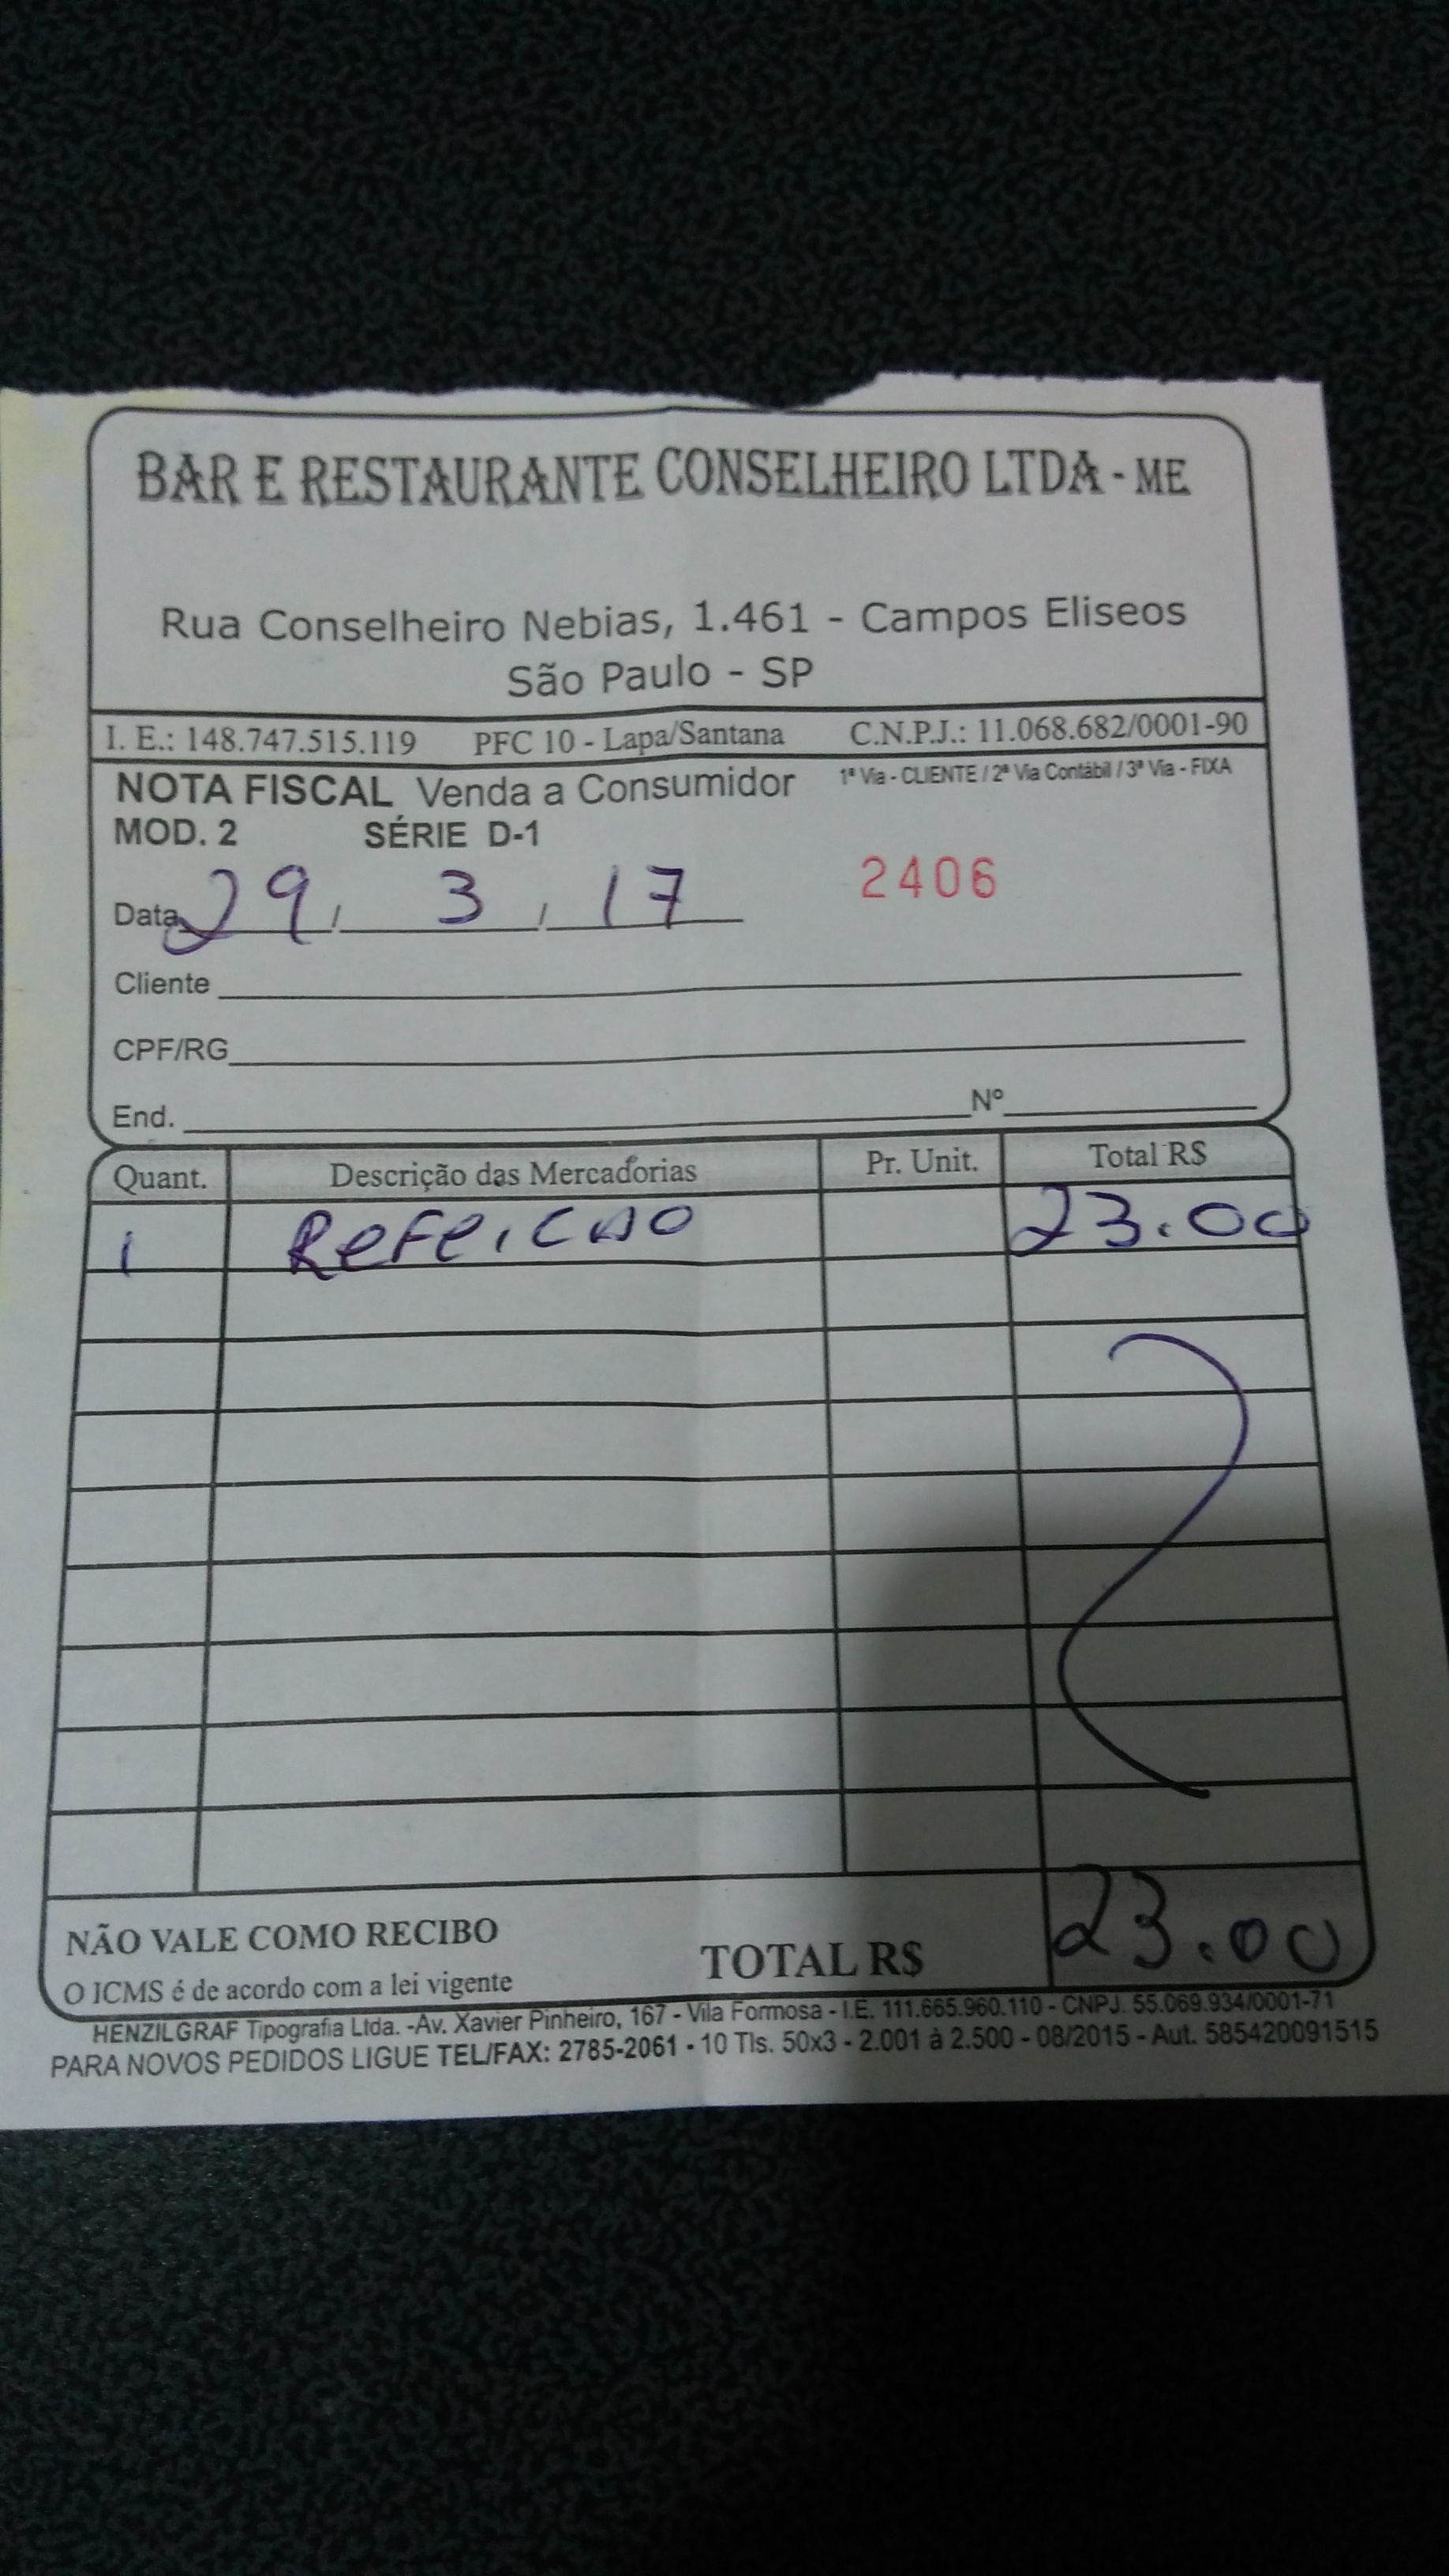 BAR E RESTAURANTE CONSELHEIRO LTDA - ME
Rua Conselheiro Nebias, 1.461 - Campos Eliseos
São Paulo - SP
I. E.: 148.747.515.119 PFC 10 - Lapa/Santana C.N.P.J.: 11.068.682/0001-90
NOTA FISCAL Venda a Consumidor 1ª Via - CLIENTE / 2ª Via Contábil / 3ª Via - FIXA
MOD. 2 SÉRIE D-1
2406
Data 29 / 3 / 17
Cliente
CPF/RG
End. Nº
Quant. Descrição das Mercadorias Pr. Unit. Total R$
1 Refeicao 23.00
NÃO VALE COMO RECIBO
O ICMS é de acordo com a lei vigente
TOTAL R$ 23.00
HENZILGRAF Tipografia Ltda. -Av. Xavier Pinheiro, 167 - Vila Formosa - I.E. 111.665.960.110 - CNPJ. 55.069.934/0001-71
PARA NOVOS PEDIDOS LIGUE TEL/FAX: 2785-2061 - 10 Tls. 50x3 - 2.001 à 2.500 - 08/2015 - Aut. 585420091515